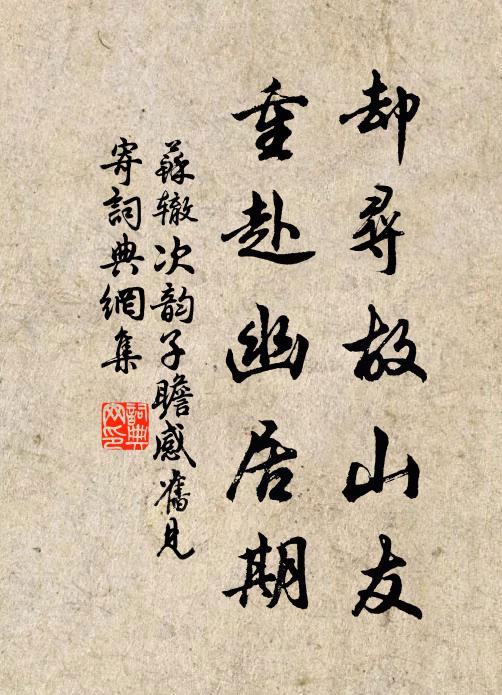 却尋故山友
重赴幽居期
蘇辙次韵子瞻感舊見
寄詞典網集
詞典
网印